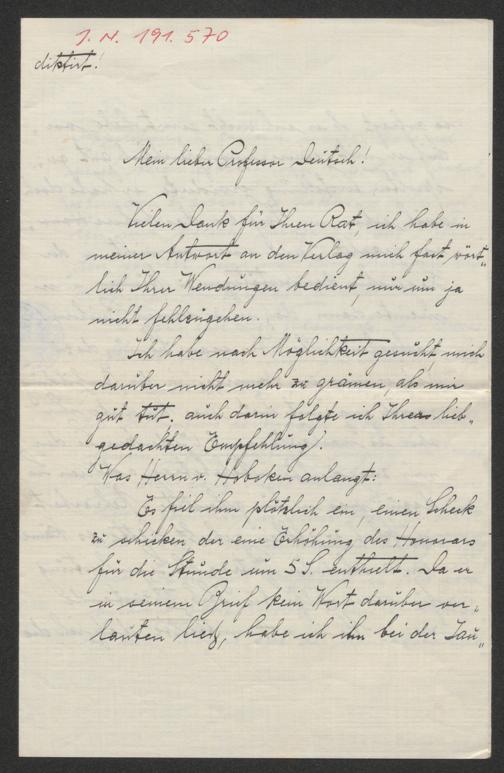 J. N. 191.570
diktirt!
Mein lieber Professor Deutsch!
Vielen Dank für Ihren Rat, ich habe in
meiner Antwort an den Verlag mich fast wört„
lich Ihrer Wendungen bedient, nur um ja
nicht fehlzugehen.
Ich habe nach Möglichkeit gesucht, mich
darüber nicht mehr zu grämen, als mir
gut tut, auch darin folgte ich Ihrer lieb„
gedachten Empfehlung.
Was Herrn v. Hoboken anlangt:
Es fiel ihm plötzlich ein, einen Scheck
zu schicken der eine Erhöhung des Honorars
für die Stunde um 5 S. enthielt. Da er
in seinem Brief kein Wort darüber ver„
lauten ließ, habe ich ihn bei der Jau„